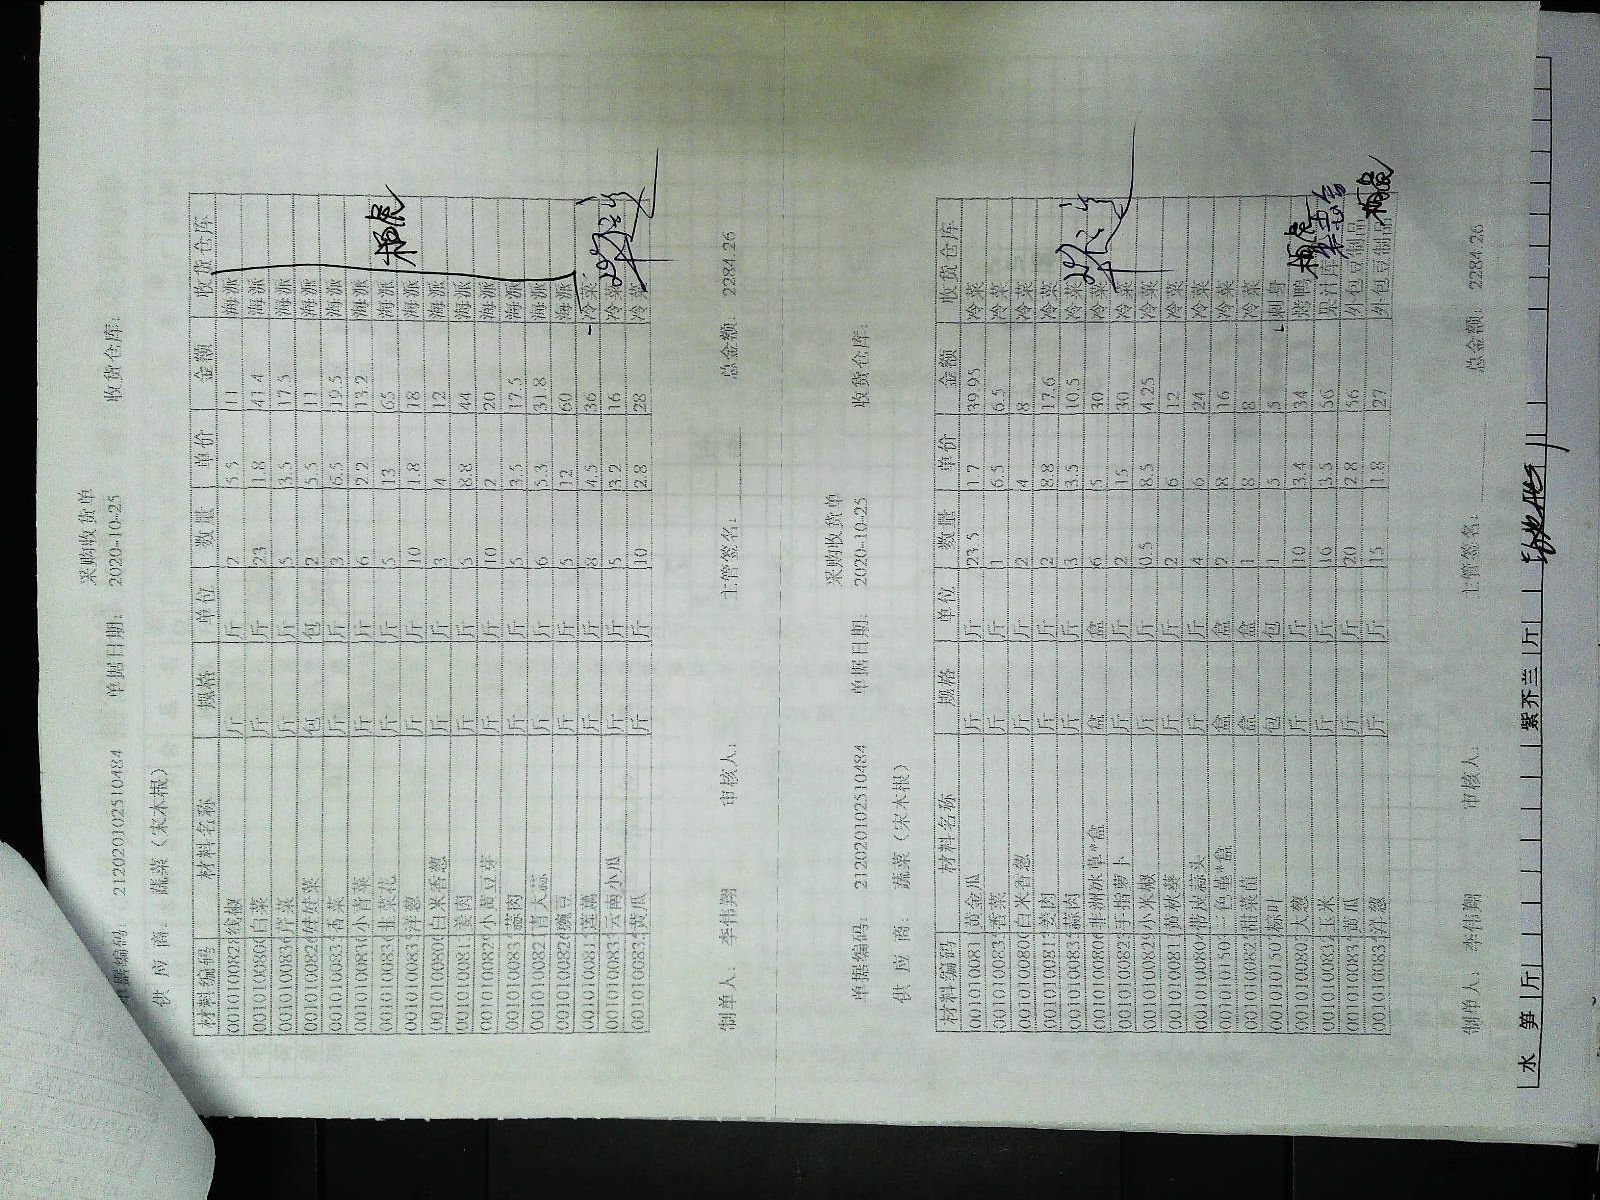 采购收货单
单据编码: 212020102510484 单据日期: 2020-10-25 收货仓库:
供 应 商: 蔬菜（宋木根）
材料编码 材料名称 规格 单位 数量 单价 金额 收货仓库
001010082 线椒 斤 斤 2 5.5 11 海派
001010080 白菜 斤 斤 23 1.8 41.4 海派
001010083 芹菜 斤 斤 5 3.5 17.5 海派
001010082 娃娃菜 包 包 2 5.5 11 海派
001010083 香菜 斤 斤 3 6.5 19.5 海派
001010083 小青菜 斤 斤 6 2.2 13.2 海派
001010083 韭菜花 斤 斤 5 13 65 海派
001010083 洋葱 斤 斤 10 1.8 18 海派
001010080 白米香葱 斤 斤 3 4 12 海派
001010081 姜肉 斤 斤 5 8.8 44 海派
001010082 小黄豆芽 斤 斤 10 2 20 海派
001010083 蒜肉 斤 斤 5 3.5 17.5 海派
001010082 青大蒜 斤 斤 6 5.3 31.8 海派
001010082 豌豆 斤 斤 5 12 60 海派
001010081 莲藕 斤 斤 8 4.5 36 冷菜
001010083 云南小瓜 斤 斤 5 3.2 16 冷菜
001010083 黄瓜 斤 斤 10 2.8 28 冷菜
制单人: 李伟翔 审核人: 主管签名: 总金额: 2284.26
采购收货单
单据编码: 212020102510484 单据日期: 2020-10-25 收货仓库:
供 应 商: 蔬菜（宋木根）
材料编码 材料名称 规格 单位 数量 单价 金额 收货仓库
001010081 黄金瓜 斤 斤 23.5 1.7 39.95 冷菜
001010083 香菜 斤 斤 1 6.5 6.5 冷菜
001010080 白米香葱 斤 斤 2 4 8 冷菜
001010081 姜肉 斤 斤 2 8.8 17.6 冷菜
001010083 蒜肉 斤 斤 3 3.5 10.5 冷菜
001010080 非洲冰草*盒 盒 盒 6 5 30 冷菜
001010082 手指萝卜 斤 斤 2 15 30 冷菜
001010082 小米椒 斤 斤 0.5 8.5 4.25 冷菜
001010081 黄秋葵 斤 斤 2 6 12 冷菜
001010080 带皮蒜头 斤 斤 4 6 24 冷菜
001010150 三色堇*盒 盒 盒 2 8 16 冷菜
001010082 甜菜苗 盒 盒 1 8 8 冷菜
001010150 粽叶 包 包 1 5 5 刺身
001010080 大葱 斤 斤 10 3.4 34 烧鸭
001010083 玉米 斤 斤 16 3.5 56 果汁库
001010083 黄瓜 斤 斤 20 2.8 56 外包豆制品
001010083 洋葱 斤 斤 15 1.8 27 外包豆制品
制单人: 李伟翔 审核人: 主管签名: 总金额: 2284.26
水 笋 斤 紫芥兰 斤